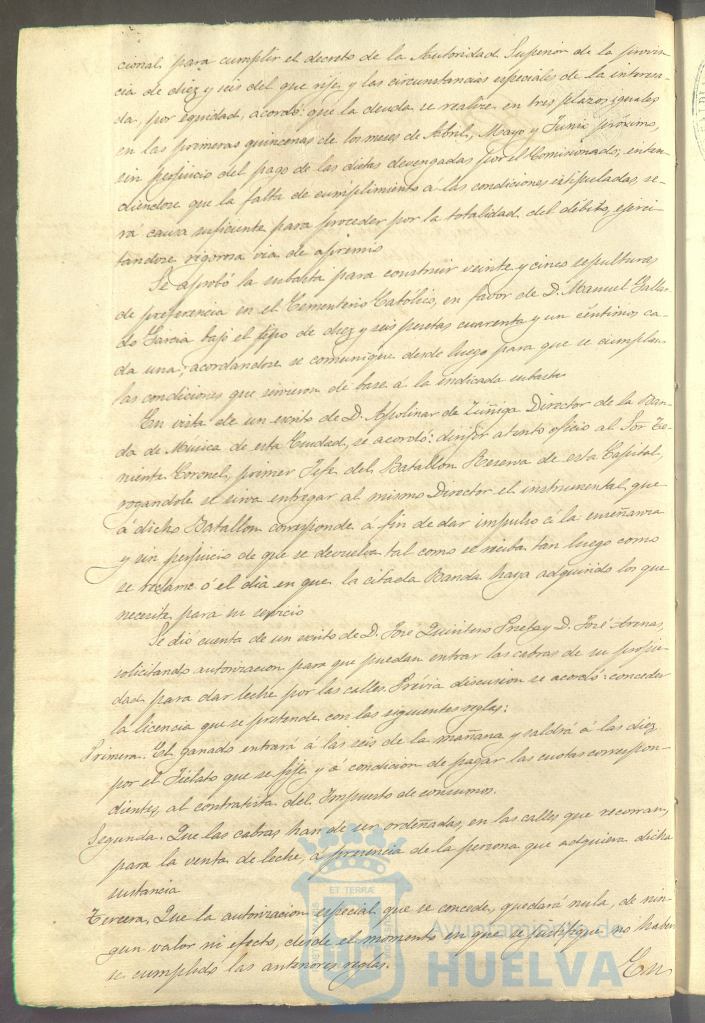 cional para cumplir el decreto de la Autoridad Superior de la provin-
cia de diez y seis del que rije y las circunstancias especiales de la interesa-
da, por equidad, acordó: que la deuda se realize en tres plazos iguales
en las primeras quincenas de los meses de Abril, Mayo y Junio próximo,
sin perjuicio del pago de las dietas devengadas por el Comisionado; enten-
diendose que la falta de cumplimiento á las condiciones estipuladas, se-
rá causa suficiente para proceder por la totalidad del débito, ejerci-
tandose rigorosa via de apremio
Se aprobó la subasta para construir veinte y cinco sepulturas
de preferencia en el Cementerio Católico, en favor de D. Manuel Galla-
do Garcia bajo el tipo de diez y seis pesetas cuarenta y un céntimos ca-
da una; acordandose se comunique desde luego para que se cumplan
las condiciones que sirvieron de base á la indicada subasta
En vista de un escrito de D. Apolinar de Zúñiga Director de la Ban-
da de Música de esta Ciudad, se acordó: dirijir atento oficio al Sor Te-
niente Coronel, primer Jefe del Batallon Reserva de esta Capital,
rogandole se sirva entregar al mismo Director el instrumental que
á dicho Batallon corresponde a fin de dar impulso á la enseñanza
y sin perjuicio de que se devuelva tal como se reciba tan luego como
se reclame ó el dia en que la citada Banda haya adquirido los que
necesita para su servicio
Se dió cuenta de un escrito de D. José Quintero y D. José Arenas,
solicitando autorizacion para que puedan entrar las cabras de su propie-
dad para dar leche por las calles. Prévia discusion se acordó: conceder
la licencia que se pretende con las siguientes reglas:
Primera. El ganado entrará á las seis de la mañana y saldrá á las diez
por el Fielato que se fije y á condicion de pagar las cuotas correspon-
dientes, al contratista del Impuesto de consumos.
Segunda. Que las cabras han de ser ordeñadas, en las calles que recorran,
para la venta de leche, á presencia de la persona que adquiera dicha
sustancia
Tercera. Que la autorizacion especial que se concede, quedará nula, de nin-
gun valor ni efecto, desde el momento en que se justifique no haber
se cumplido las anteriores reglas.
En
ET TERRÆ
Ayuntamiento de
HUELVA